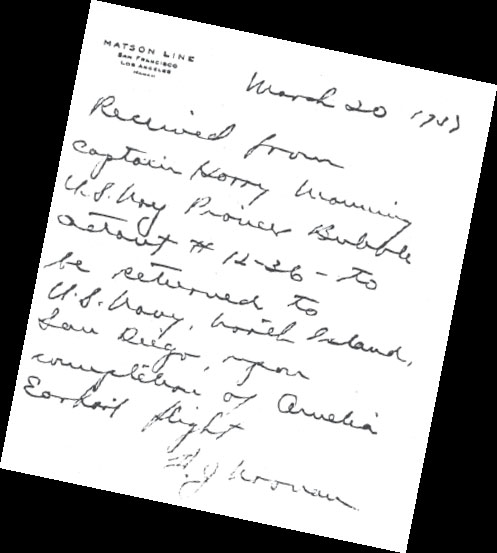 MATSON LINE
SAN FRANCISCO
LOS ANGELES
HAWAII
March 20 1937
Received from
Captain Harry Manning
U.S. Navy Pioneer Bubble
Octant # 12-36 - to
be returned to
U.S. Navy, North Island,
San Diego, upon
completion of Amelia
Earhart flight
F. J Noonan